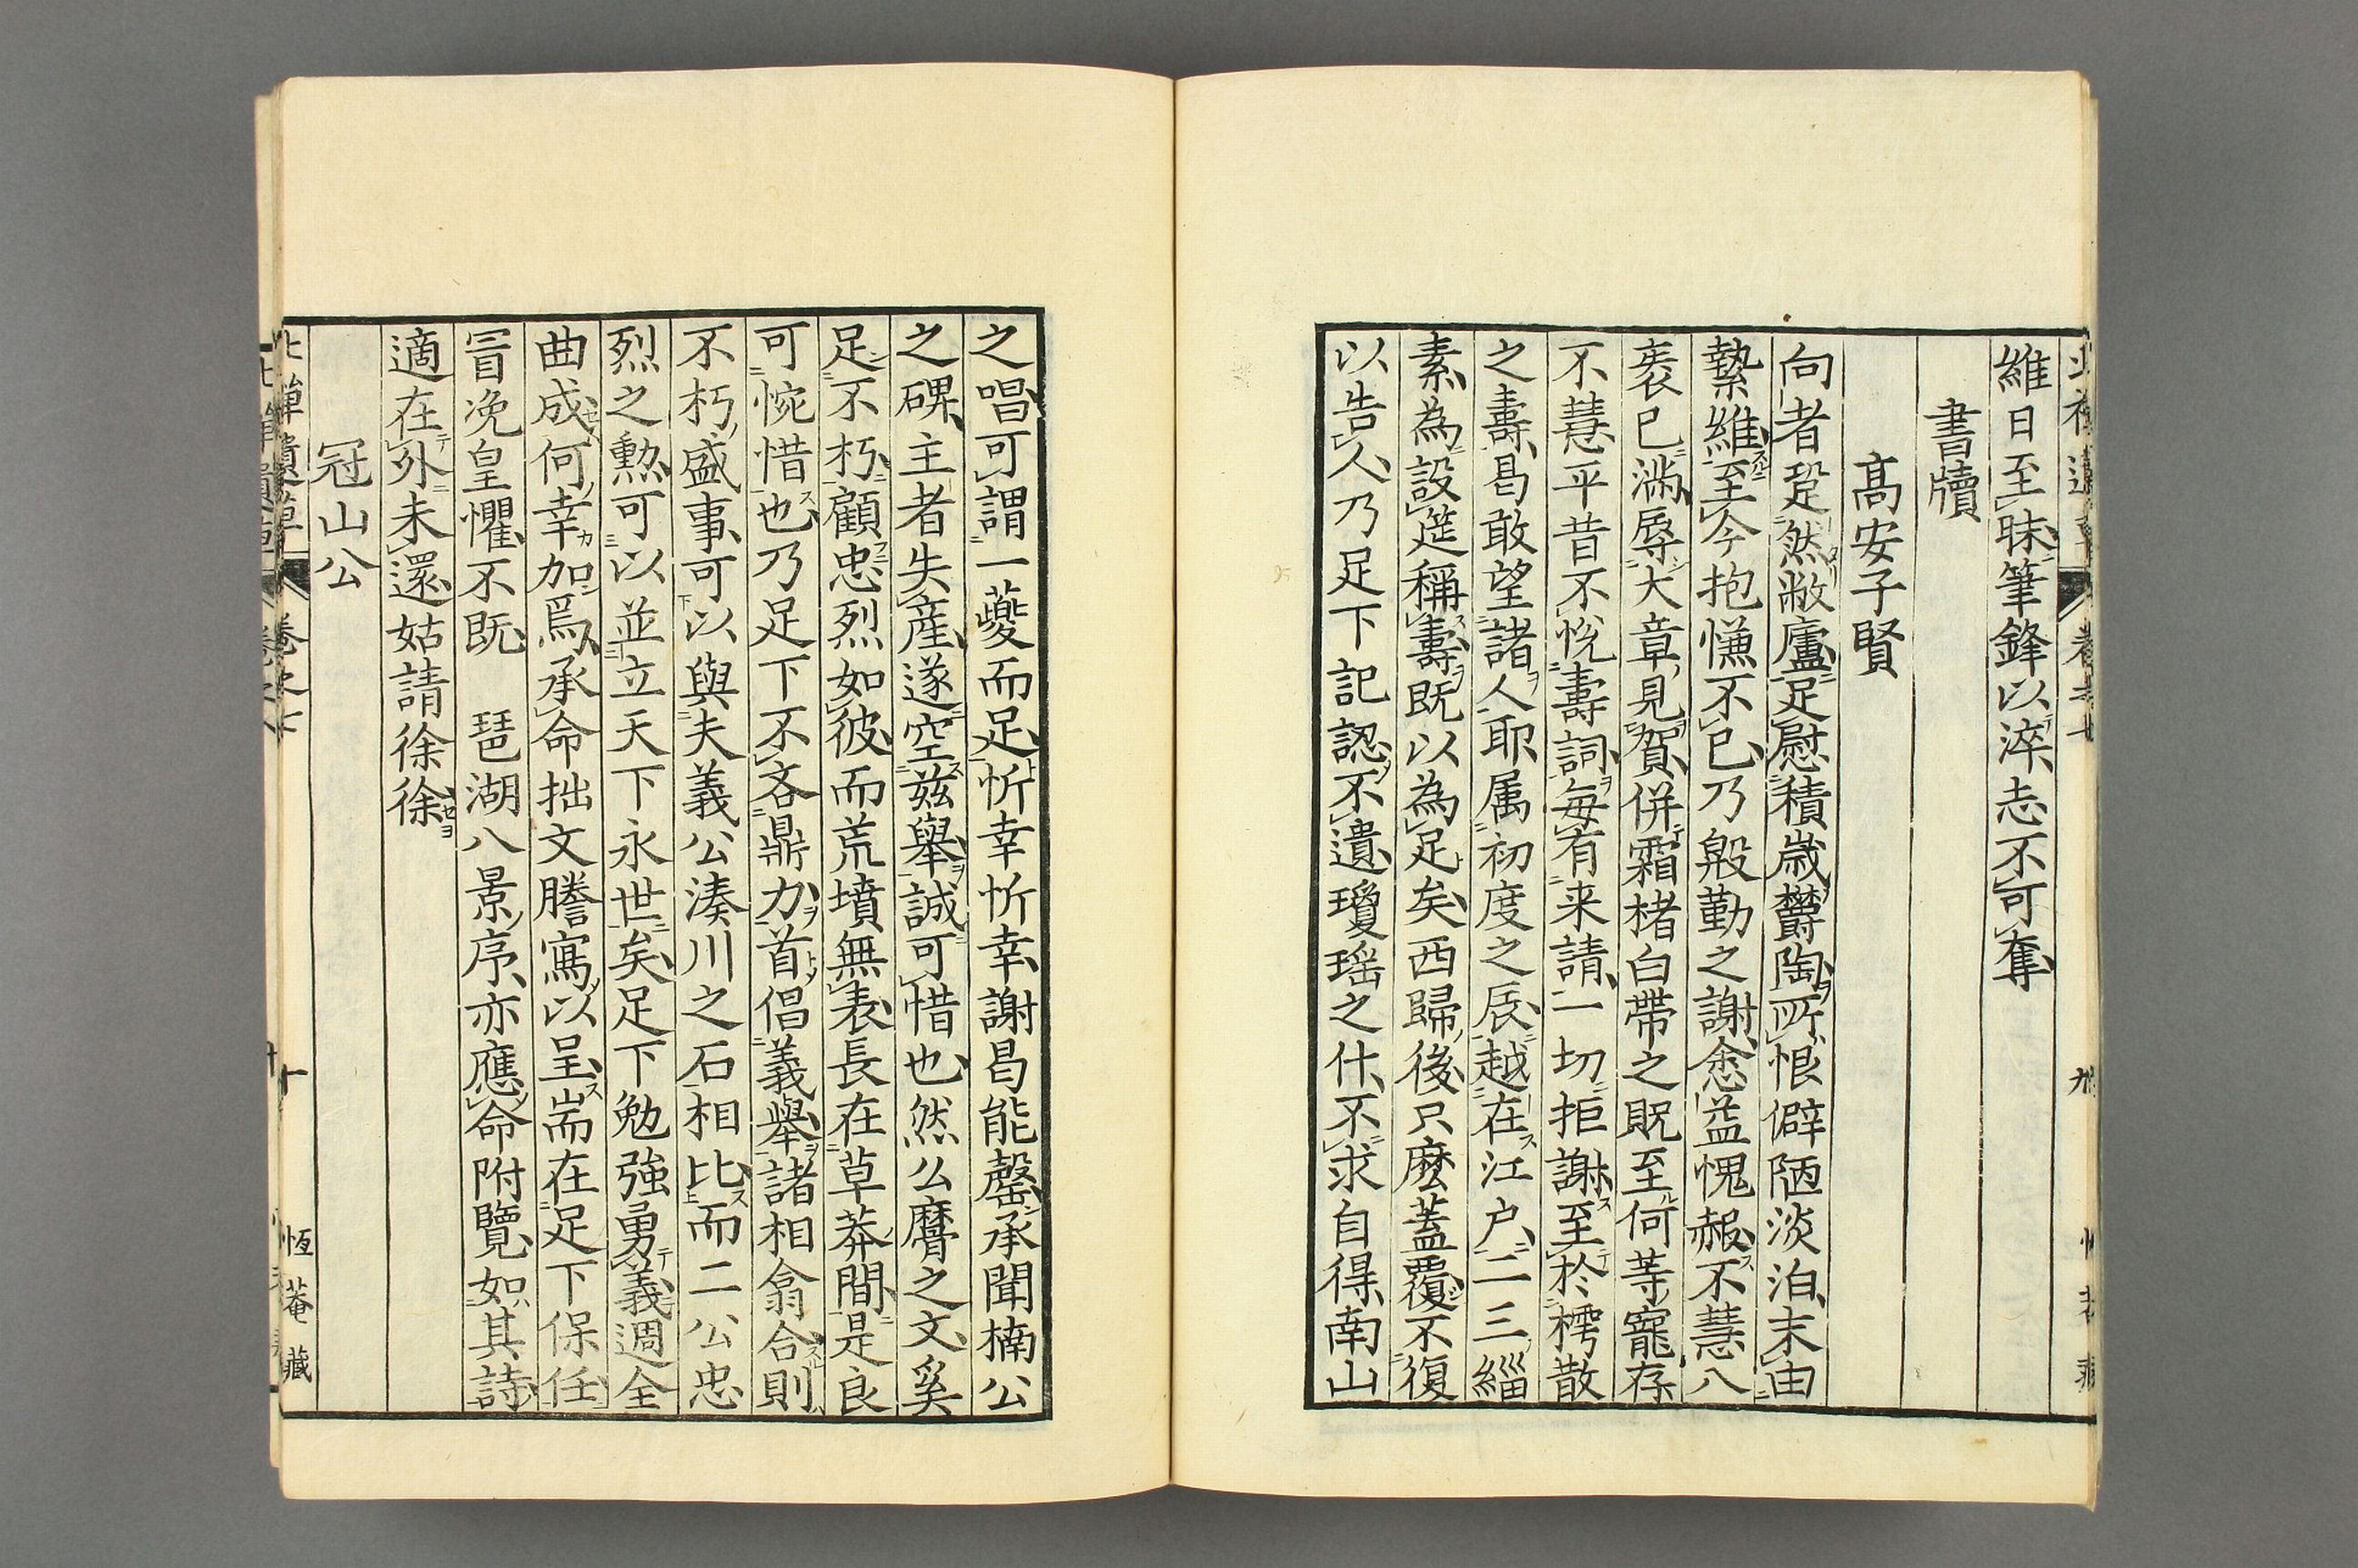 維日至昧筆鋒以淬志不可奪
書牘
高安子賢
向者跫然敝廬足慰積歳欝陶所恨僻陋淡泊末由
縶維至今抱慊不已乃殷勤之謝愈益愧赧不慧八
袠已滿辱大章見賀併霜楮白帶之貺至何等寵存
不慧平昔不悅壽詞每有来請一切拒謝至於樗散
之壽曷敢望諸人耶属初度之辰越在江户二三緇
素為設筵稱壽既以為足矣西歸後只麼蓋覆不復
以告人乃足下記認不遺瓊瑤之什不求自得南山
之唱可謂一夔而足忻幸忻幸謝曷能罄承聞楠公
之碑主者失產遂空茲舉誠可惜也然么麿之文奚
足不朽顧忠烈如彼而荒墳無表長在草莽間是良
可惋惜也乃足下不吝鼎力首倡義舉諸相翕合則
不朽盛事可以與夫義公湊川之石相比而二公忠
烈之勲可以並立天下永世矣足下勉強勇義週全
曲成何幸加焉承命拙文謄寫以呈耑在足下保任
冒浼皇懼不既　琶湖八景序亦應命附覽如其詩
適在外未還姑請徐徐
冠山公
恆菴藏